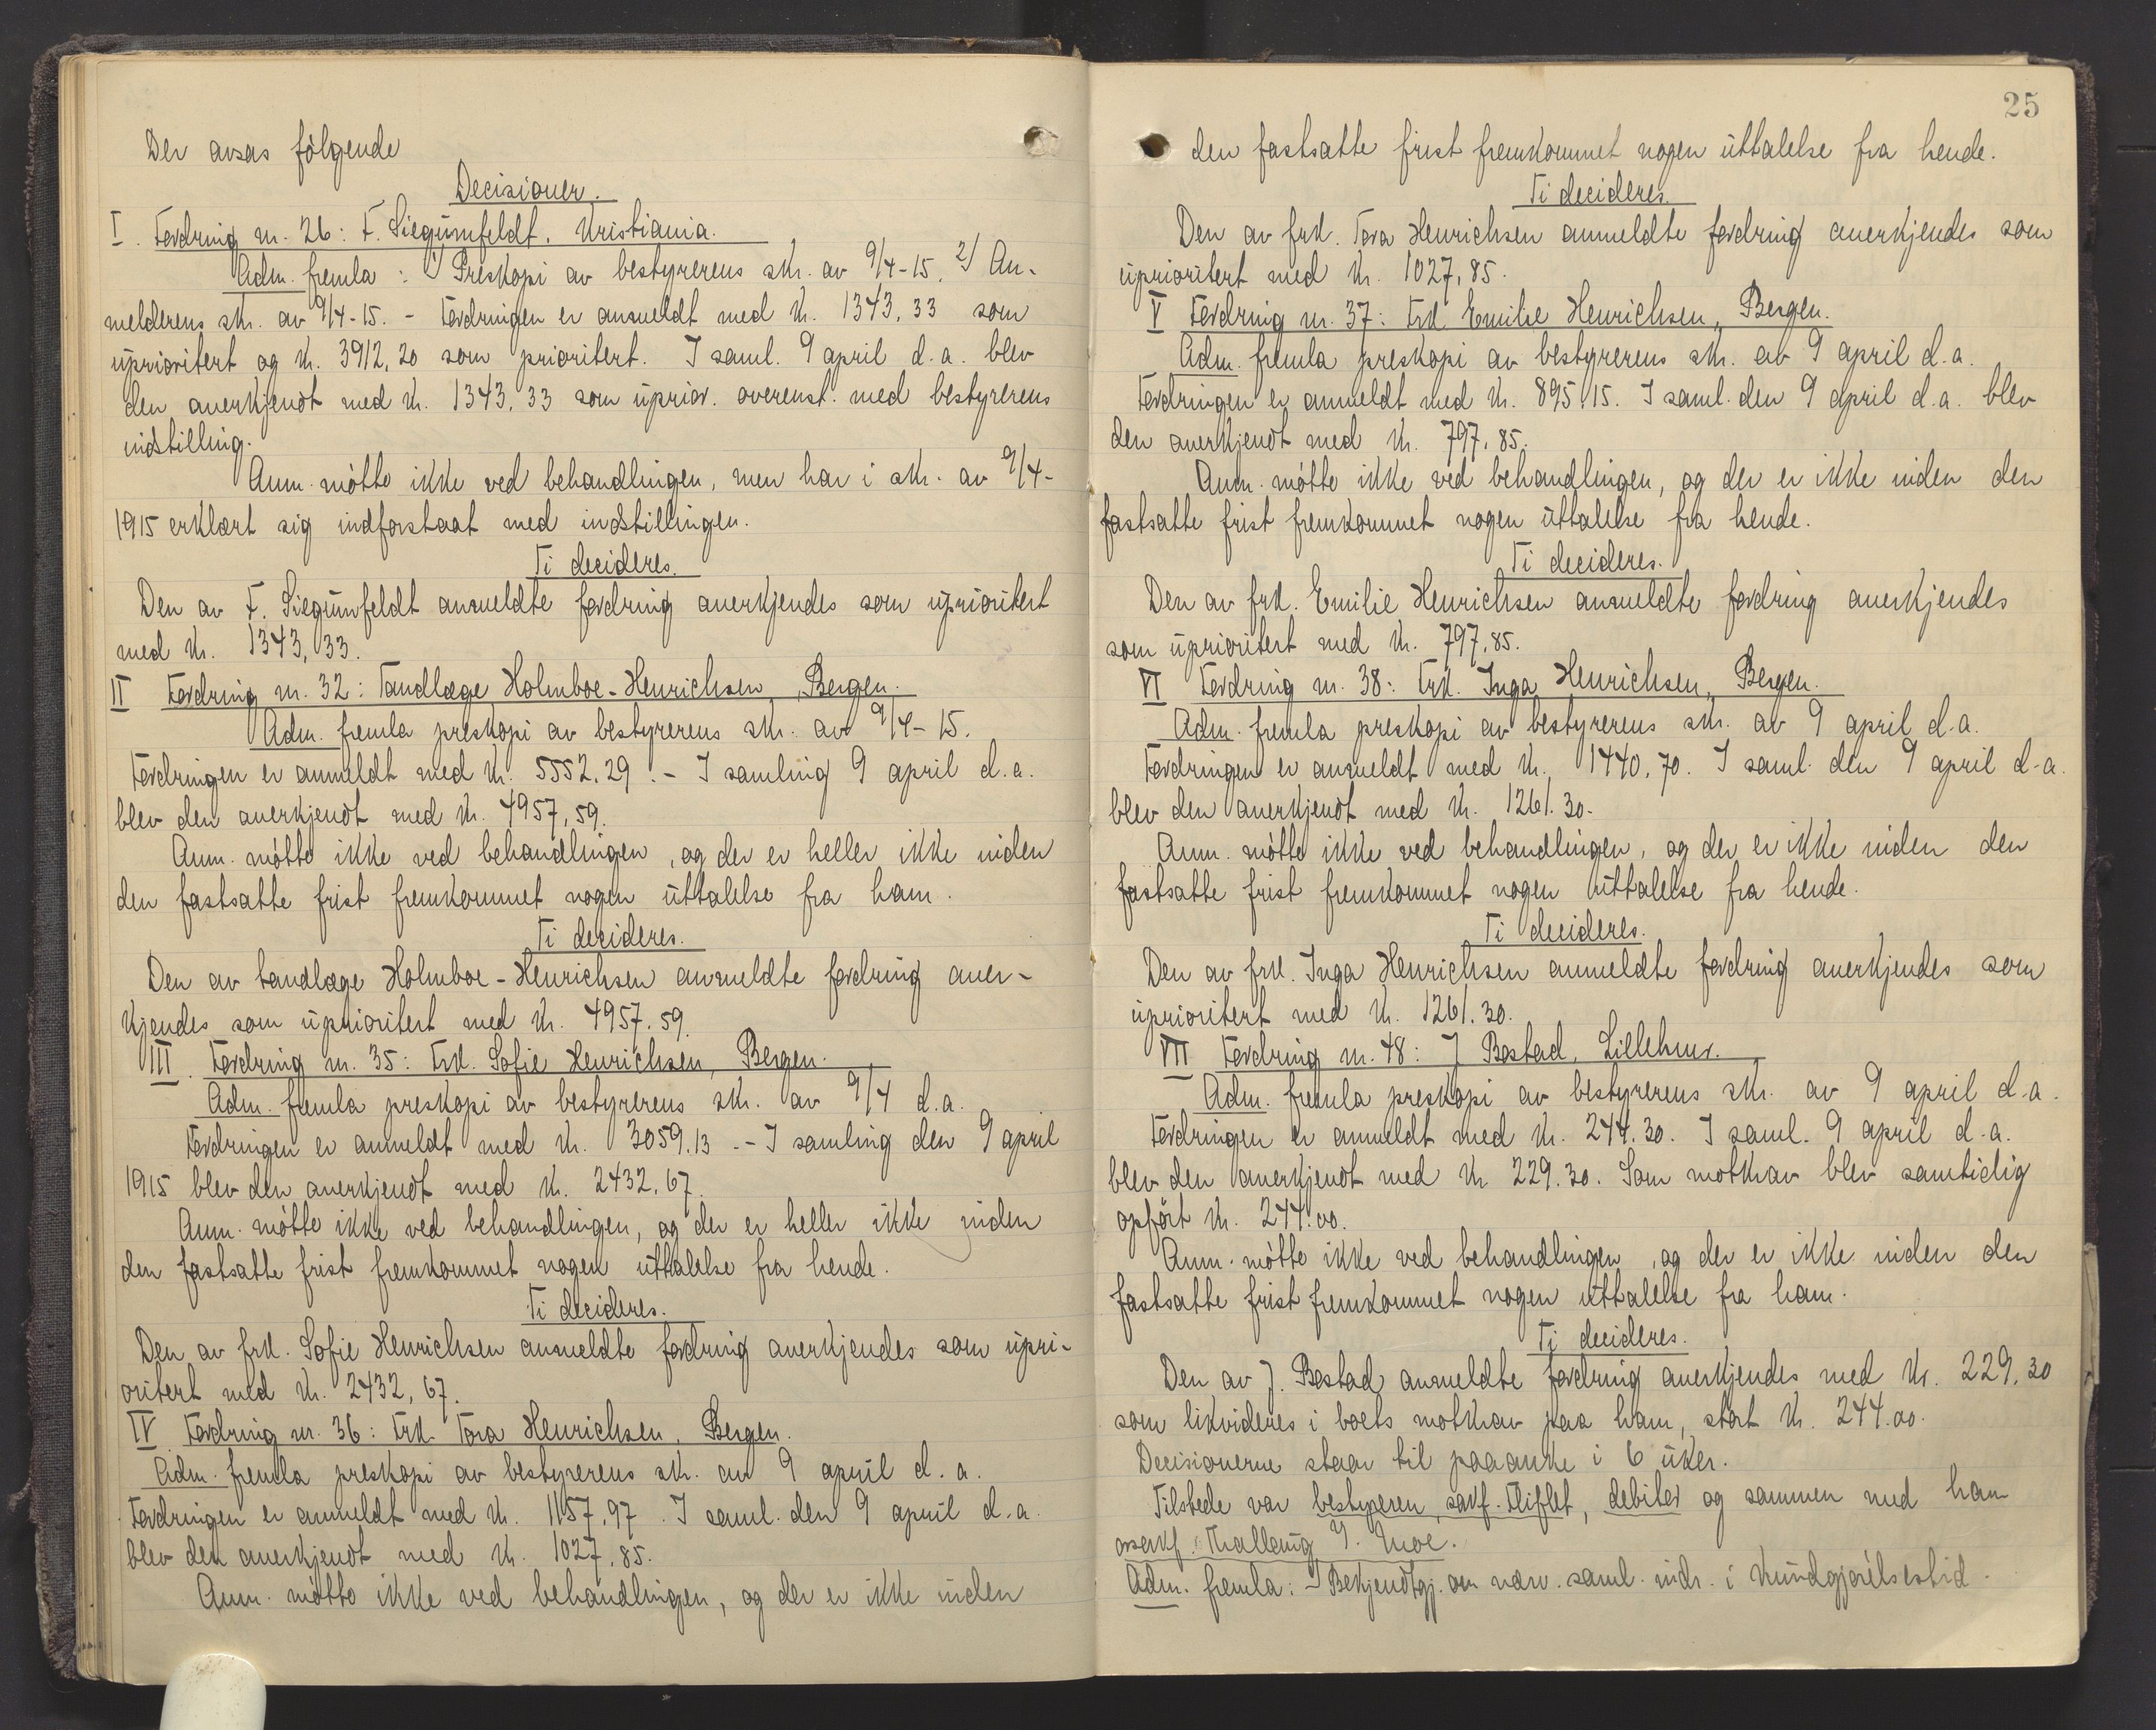 Der avsas følgende
Decisioner.
I. Fordring nr. 26: F. Siegumfeldt, Kristiania.
Adm. fremla: 1) Preskopi av bestyrerens skr. av 9/4-15. 2) An-
melderens skr. av 9/4-15. - Fordringen er anmeldt med kr. 1343,33 som
uprioritert og kr. 3912,20 som prioritert. I saml. 9 april d.a. blev
den anerkjendt med kr. 1343,33 som uprior. overenst. med bestyrerens
indstilling.
Anm. møtte ikke ved behandlingen, men har i skr. av 9/4-
1915 erklært sig indforstaat med indstillingen.
Ti decideres.
Den av F. Siegumfeldt anmeldte fordring anerkjendes som uprioritert
med kr. 1343,33.
II Fordring nr. 32: Tandlæge Holmboe-Henrichsen, Bergen.
Adm. fremla preskopi av bestyrerens skr. av 9/4-15.
Fordringen er anmeldt med kr. 5552.29. - I samling 9 april d.a.
blev den anerkjendt med kr. 4957,59.
Anm. møtte ikke ved behandlingen, og der er heller ikke inden
den fastsatte frist fremkommet nogen uttalelse fra ham.
Ti decideres.
Den av tandlæge Holmboe-Henrichsen anmeldte fordring aner-
kjendes som uprioritert med kr. 4957.59.
III. Fordring nr. 35: Frk. Sofie Henrichsen, Bergen.
Adm. fremla preskopi av bestyrerens skr. av 9/4 d.a.
Fordringen er anmeldt med kr. 3059.13 - I samling den 9 april
1915 blev den anerkjendt med kr. 2432,67.
Anm. møtte ikke ved behandlingen, og der er heller ikke inden
den fastsatte frist fremkommet nogen uttalelse fra hende.
Ti decideres.
Den av frk. Sofie Henrichsen anmeldte fordring anerkjendes som upri-
oritert med kr. 2432,67.
IV Fordring nr. 36: Frk. Tora Henrichsen, Bergen.
Adm. fremla preskopi av bestyrerens skr. av 9 april d.a.
Fordringen er anmeldt med kr. 1157,97. I saml. den 9 april d.a.
blev den anerkjendt med kr. 1027,85.
Anm. møtte ikke ved behandlingen, og der er ikke inden
25
den fastsatte frist fremkommet nogen uttalelse fra hende.
Ti decideres.
Den av frk. Tora Henrichsen anmeldte fordring anerkjendes som
uprioritert med kr. 1027,85.
V Fordring nr. 37: Frk Emilie Henrichsen, Bergen.
Adm. fremla preskopi av bestyrerens skr. av 9 april d.a.
Fordringen er anmeldt med kr. 895,15. I saml. den 9 april d.a. blev
den anerkjendt med kr. 797,85.
Anm. møtte ikke ved behandlingen, og der er ikke inden den
fastsatte frist fremkommet nogen uttalelse fra hende.
Ti decideres.
Den av frk. Emilie Henrichsen anmeldte fordring anerkjendes
som uprioritert med kr. 797,85.
VI Fordring nr. 38: Frk. Inga Henrichsen, Bergen.
Adm. fremla preskopi av bestyrerens skr. av 9 april d.a.
Fordringen er anmeldt med kr. 1440,70. I saml. den 9 april d.a.
blev den anerkjendt med kr. 1261.30.
Anm. møtte ikke ved behandlingen, og der er ikke inden den
fastsatte frist fremkommet nogen uttalelse fra hende.
Ti decideres.
Den av frk. Inga Henrichsen anmeldte fordring anerkjendes som
uprioritert med kr. 1261.30.
VII Fordring nr. 48: J Bostad, Lillehmr.
Adm. fremla preskopi av bestyrerens skr. av 9 april d.a.
Fordringen er anmeldt med kr. 244.30. I saml. 9 april d.a.
blev den anerkjendt med kr 229.30. Som motkrav blev samtidig
opført kr. 244.00.
Anm. møtte ikke ved behandlingen, og der er ikke inden den
fastsatte frist fremkommet nogen uttalelse fra ham.
Ti decideres.
Den av J. Bostad anmeldte fordring anerkjendes med kr. 229,30
som likvideres i boets motkrav paa ham, stort kr. 244.00.
Decisionerne staar til paaanke i 6 uker.
Tilstede var bestyreren, sakf. Fliflet, debitor og sammen med ham
osakf. Thallaug &. Moe.
Adm. fremla: - Bekjendtgj. om nærv. saml. indr. i kundgjørelsestid.